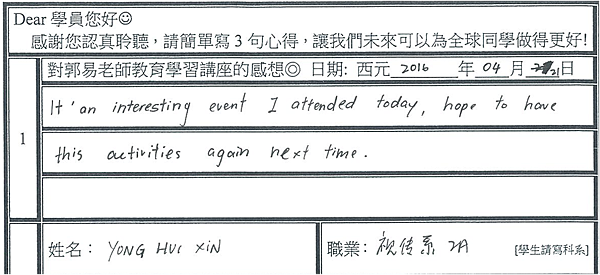 Dear 學員您好☺
感謝您認真聆聽，請簡單寫 3 句心得，讓我們未來可以為全球同學做得更好!
對郭易老師教育學習講座的感想◎ 日期: 西元 2016 年 04 月 21 日
1
It'an interesting event I attended today, hope to have
this activities again next time.
姓名： YONG HUI XIN
職業： 視传系 2A [學生請寫科系]